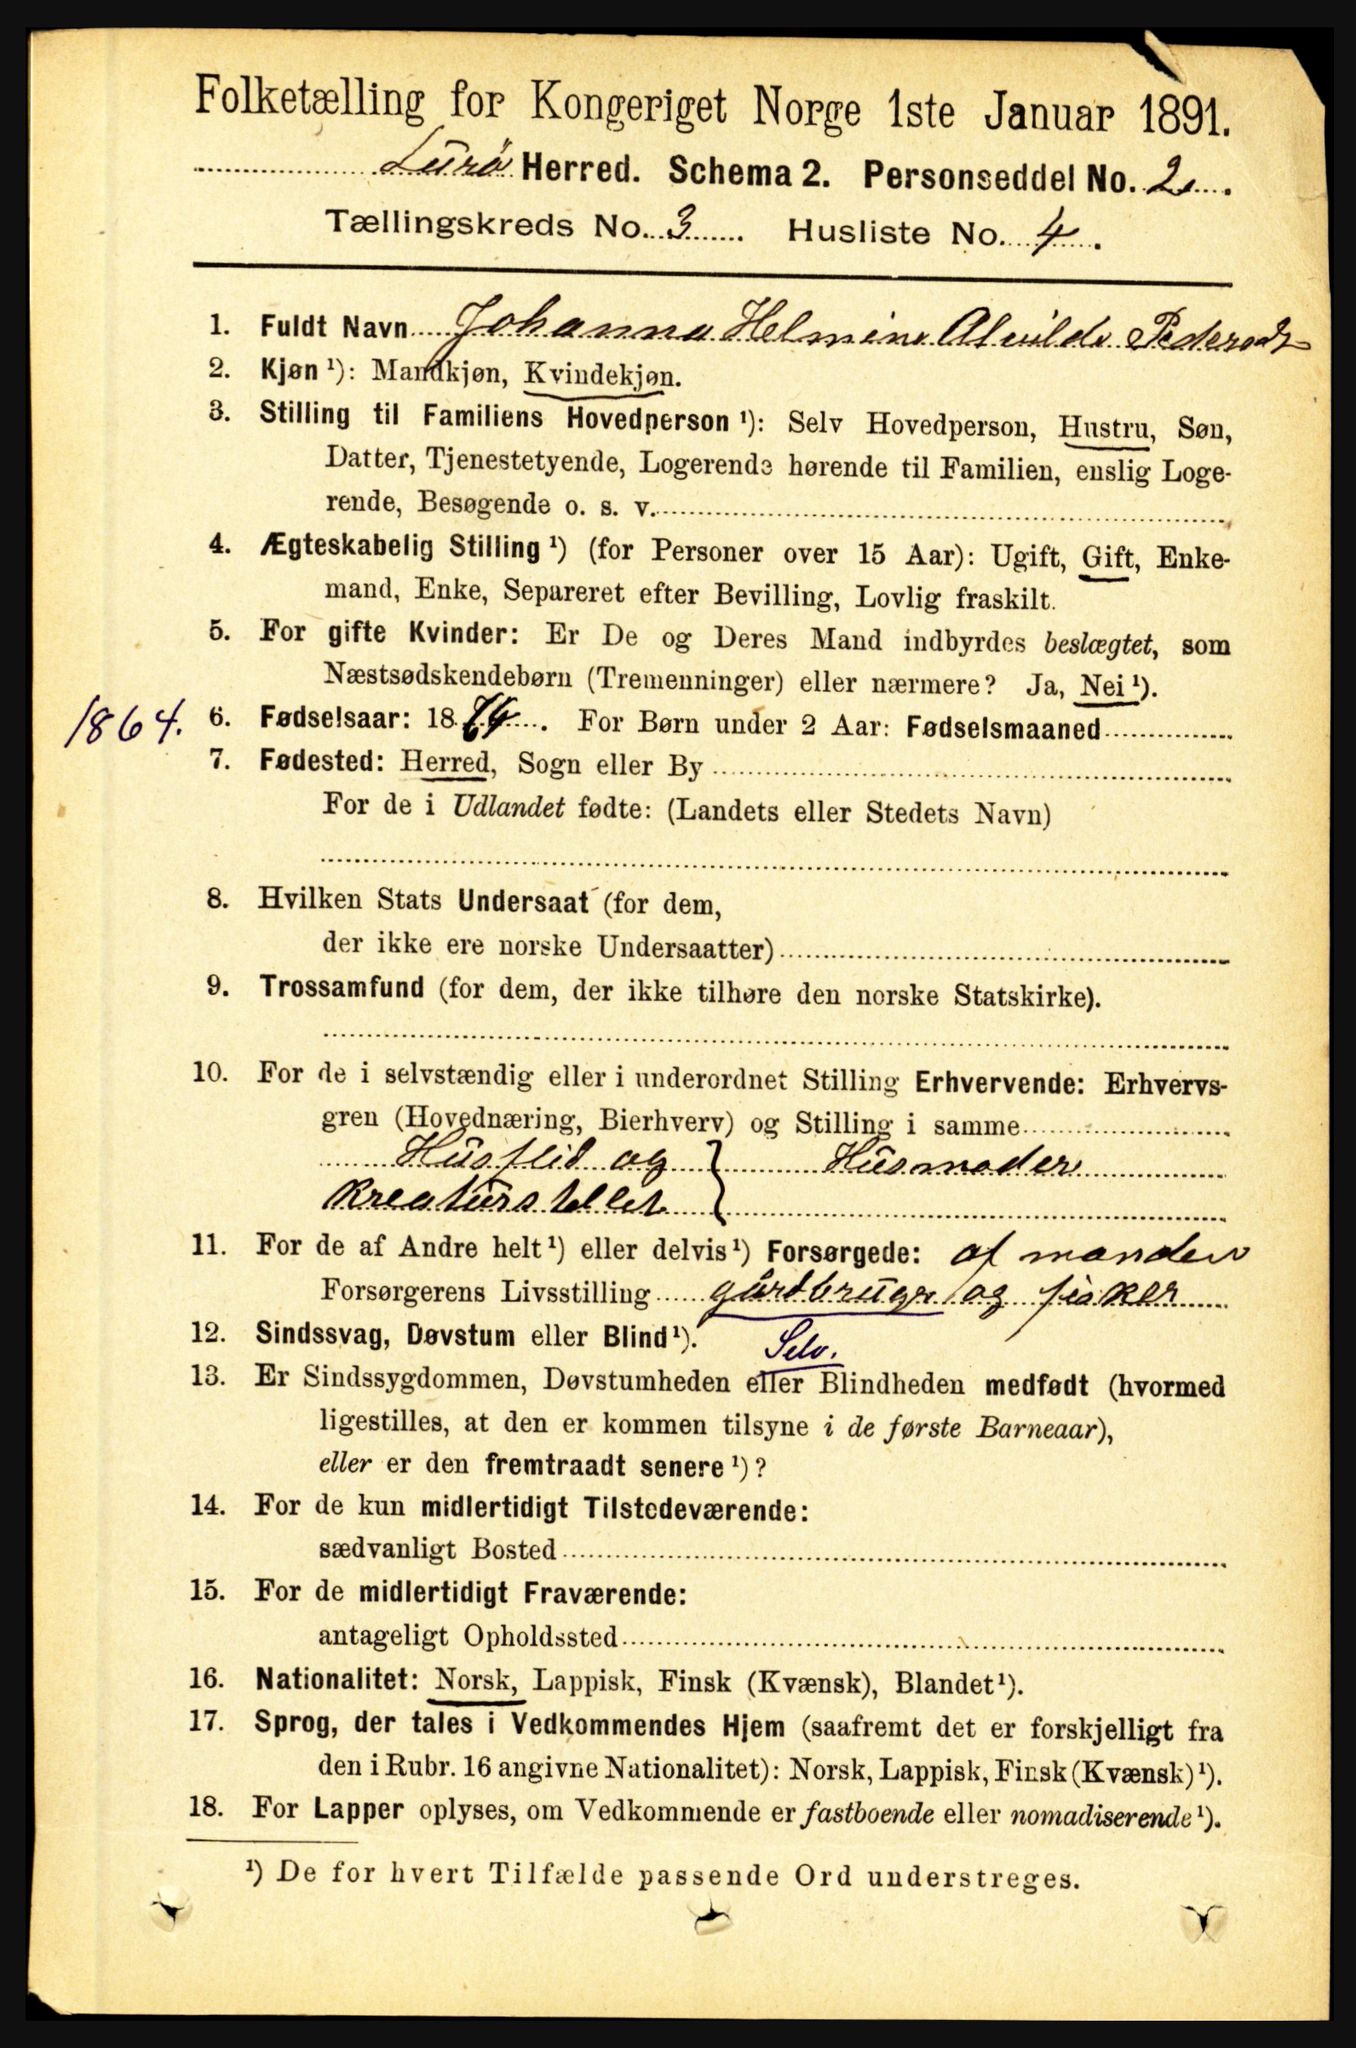 Folketælling for Kongeriget Norge 1ste Januar 1891.
Lurø Herred. Schema 2. Personseddel No. 2.
Tællingskreds No. 3 Husliste No. 4.
1. Fuldt Navn Johanna Helmine Alvilde Pedersdt
2. Kjøn ¹): Mandkjøn, Kvindekjøn.
3. Stilling til Familiens Hovedperson ¹): Selv Hovedperson, Hustru, Søn,
Datter, Tjenestetyende, Logerende hørende til Familien, enslig Loge-
rende, Besøgende o. s. v.
4. Ægteskabelig Stilling ¹) (for Personer over 15 Aar): Ugift, Gift, Enke-
mand, Enke, Separeret efter Bevilling, Lovlig fraskilt.
5. For gifte Kvinder: Er De og Deres Mand indbyrdes beslægtet, som
Næstsødskendebørn (Tremenninger) eller nærmere? Ja, Nei ¹).
1864. 6. Fødselsaar: 1864. For Børn under 2 Aar: Fødselsmaaned
7. Fødested: Herred, Sogn eller By
For de i Udlandet fødte: (Landets eller Stedets Navn)
8. Hvilken Stats Undersaat (for dem,
der ikke ere norske Undersaatter)
9. Trossamfund (for dem, der ikke tilhøre den norske Statskirke).
10. For de i selvstændig eller i underordnet Stilling Erhvervende: Erhvervs-
gren (Hovednæring, Bierhverv) og Stilling i samme
Husflid og } Husmoder
kreaturstellet
11. For de af Andre helt ¹) eller delvis ¹) Forsørgede: af manden
Forsørgerens Livsstilling gårdbruger og fisker
12. Sindssvag, Døvstum eller Blind ¹). Selv.
13. Er Sindssygdommen, Døvstumheden eller Blindheden medfødt (hvormed
ligestilles, at den er kommen tilsyne i de første Barneaar),
eller er den fremtraadt senere ¹)?
14. For de kun midlertidigt Tilstedeværende:
sædvanligt Bosted
15. For de midlertidigt Fraværende:
antageligt Opholdssted
16. Nationalitet: Norsk, Lappisk, Finsk (Kvænsk), Blandet ¹).
17. Sprog, der tales i Vedkommendes Hjem (saafremt det er forskjelligt fra
den i Rubr. 16 angivne Nationalitet): Norsk, Lappisk, Finsk (Kvænsk) ¹).
18. For Lapper oplyses, om Vedkommende er fastboende eller nomadiserende ¹).
¹) De for hvert Tilfælde passende Ord understreges.